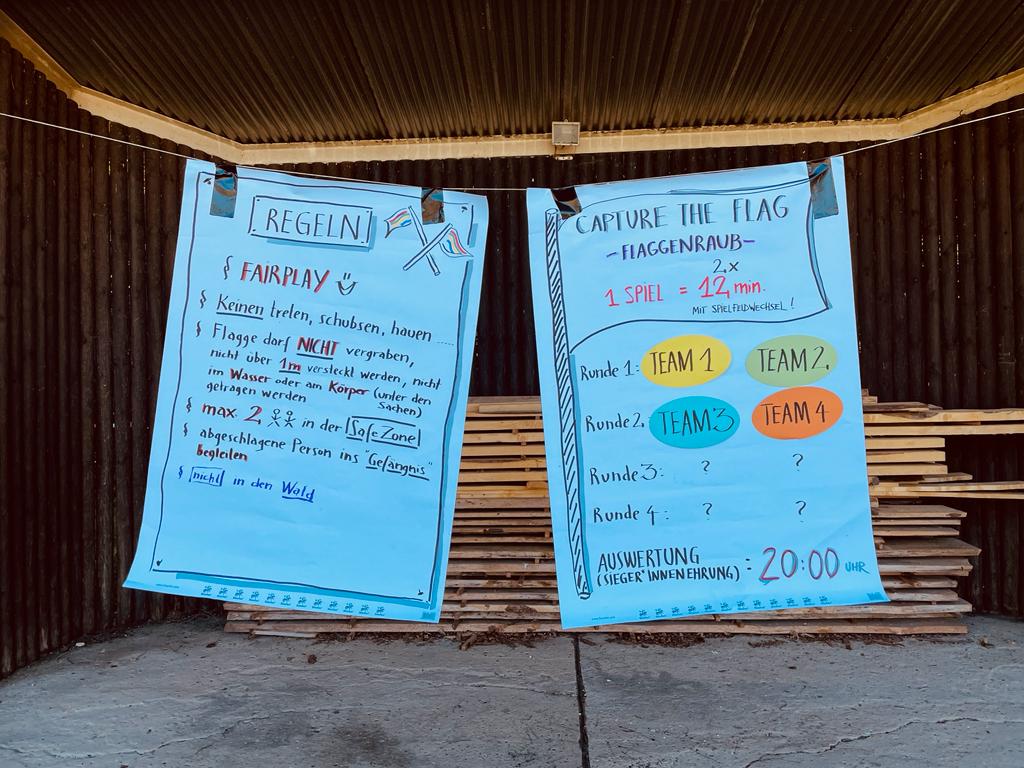 REGELN
§ FAIRPLAY
§ Keinen treten, schubsen, hauen ....
§ Flagge darf NICHT vergraben,
nicht über 1m versteckt werden, nicht
im Wasser oder am Körper (unter den
Sachen)
getragen werden
§ max. 2 in der SafeZone
§ abgeschlagene Person ins "Gefängnis"
begleiten
§ nicht in den Wald
CAPTURE THE FLAG
-FLAGGENRAUB-
2x
1 SPIEL = 12 min.
MIT SPIELFELDWECHSEL!
Runde 1: TEAM 1 TEAM 2
Runde 2: TEAM 3 TEAM 4
Runde 3: ? ?
Runde 4: ? ?
AUSWERTUNG
(SIEGER*INNENEHRUNG) : 20:00 UHR